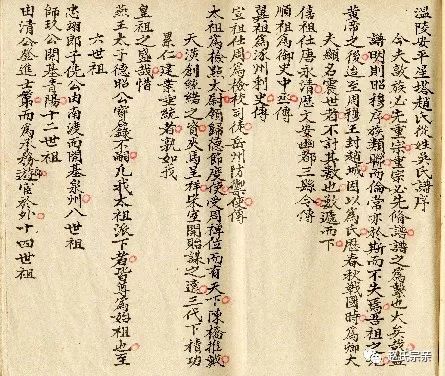 溫陵安平星塔趙氏從姓吳氏譜序
今夫敦族必先重宗重宗必先脩譜譜之為繫也大矣哉盖
譜明則昭穆序族類聯而倫常亦於斯而不失焉吾祖之先
黄帝之後造至周穆王封趙城因以為氏歷春秋戰國時為卿大
夫顯名震世者不計其數也數遞而下
僖祖仕唐永清歷文安幽都三縣令傳
順祖為御史中丞傳
翼祖為涿州刺史傳
宣祖仕周為檢校司徒岳州防禦使傳
太祖為檢點太尉領歸德節度使受周禪位而有天下陳橋推戴
天漢創統結之寶夾馬呈祥柴室開貽謀之遠三代下積功
累仁建業垂統者孰如我
皇祖之盛哉惜
燕王太子德昭公寶錄不嗣凡我太祖派下者皆尊為始祖也至
六世祖
忠翊郎子侁公由南渡而開基泉州八世祖
師玖公開基晋陽十二世祖
由清公登進士第而為承務遊宦於外十四世祖
赵氏宗亲